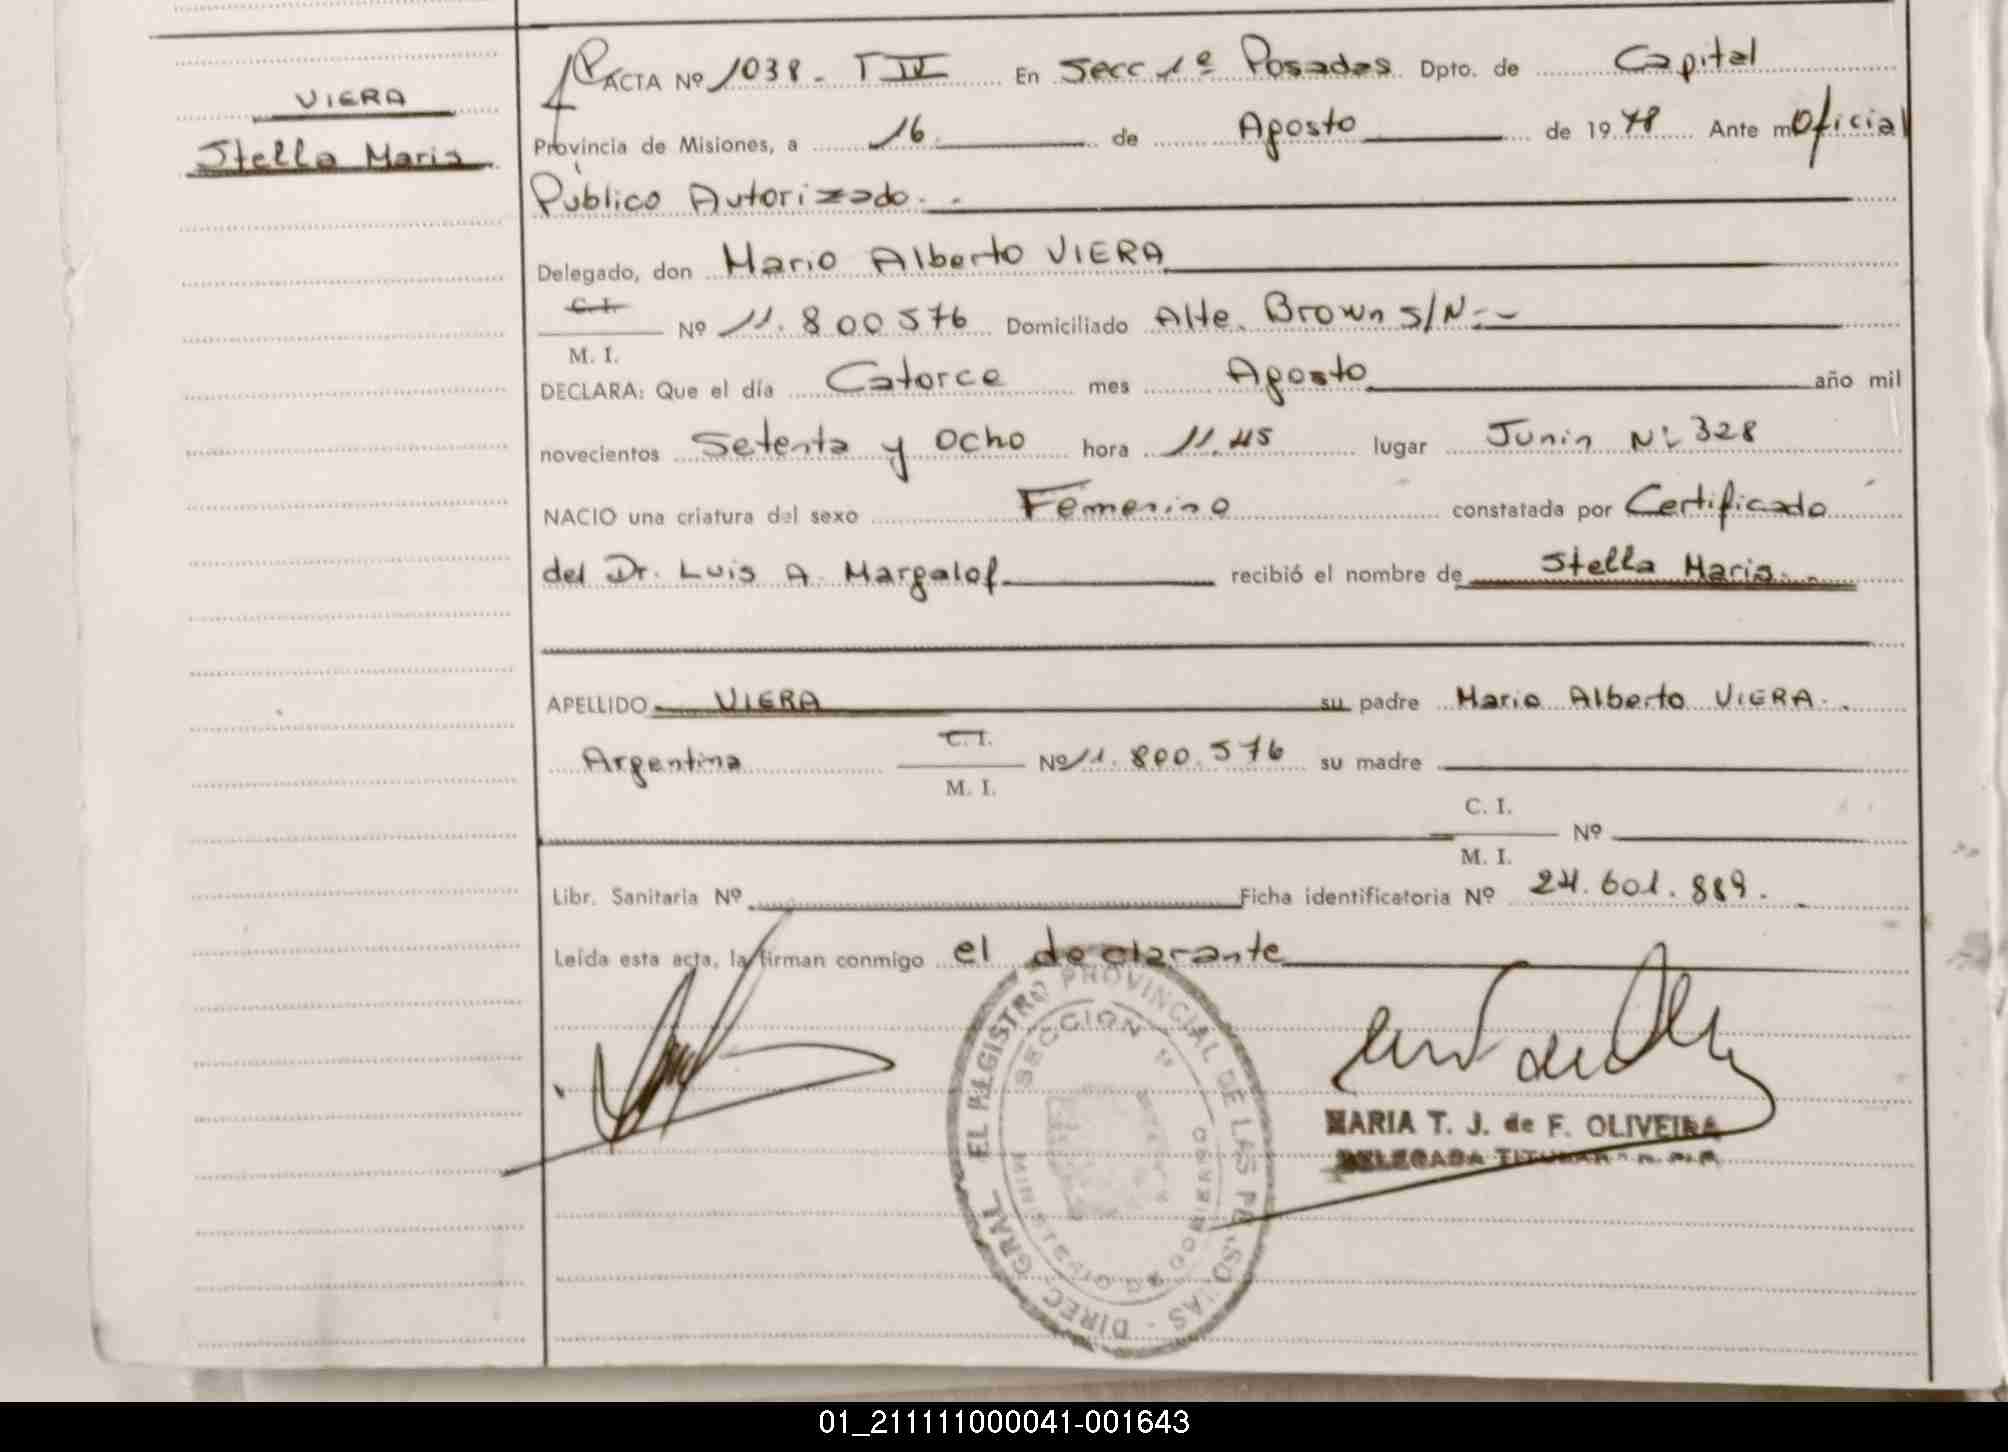 VIERA
Stella Maris
ACTA Nº 1038 - T IV En Secc 1º Posadas Dpto. de Capital
Provincia de Misiones, a 16 de Agosto de 1978 Ante mi Oficial
Público Autorizado.-
Delegado, don Mario Alberto VIERA
C.I.
M. I. Nº 11.800576 Domiciliado Alte. Brown S/N.-
DECLARA: Que el día Catorce mes Agosto año mil
novecientos Setenta y Ocho hora 11.45 lugar Junin Nº 328
NACIO una criatura del sexo Femenino constatada por Certificado
del Dr. Luis A. Margalof recibió el nombre de Stella Maris.-
APELLIDO VIERA su padre Mario Alberto VIERA.
Argentina C.I. M. I. Nº 11.800.576 su madre
C. I.
M. I. Nº
Libr. Sanitaria Nº Ficha identificatoria Nº 24.601.889.-
Leída esta acta, la firman conmigo el declarante
DIREC. GRAL. EL REGISTRO PROVINCIAL DE LAS PERSONAS -
SECCION 1ª
MINISTERIO DE GOBIERNO
MARIA T. J. de F. OLIVEIRA
DELEGADA TITULAR
01_211111000041-001643